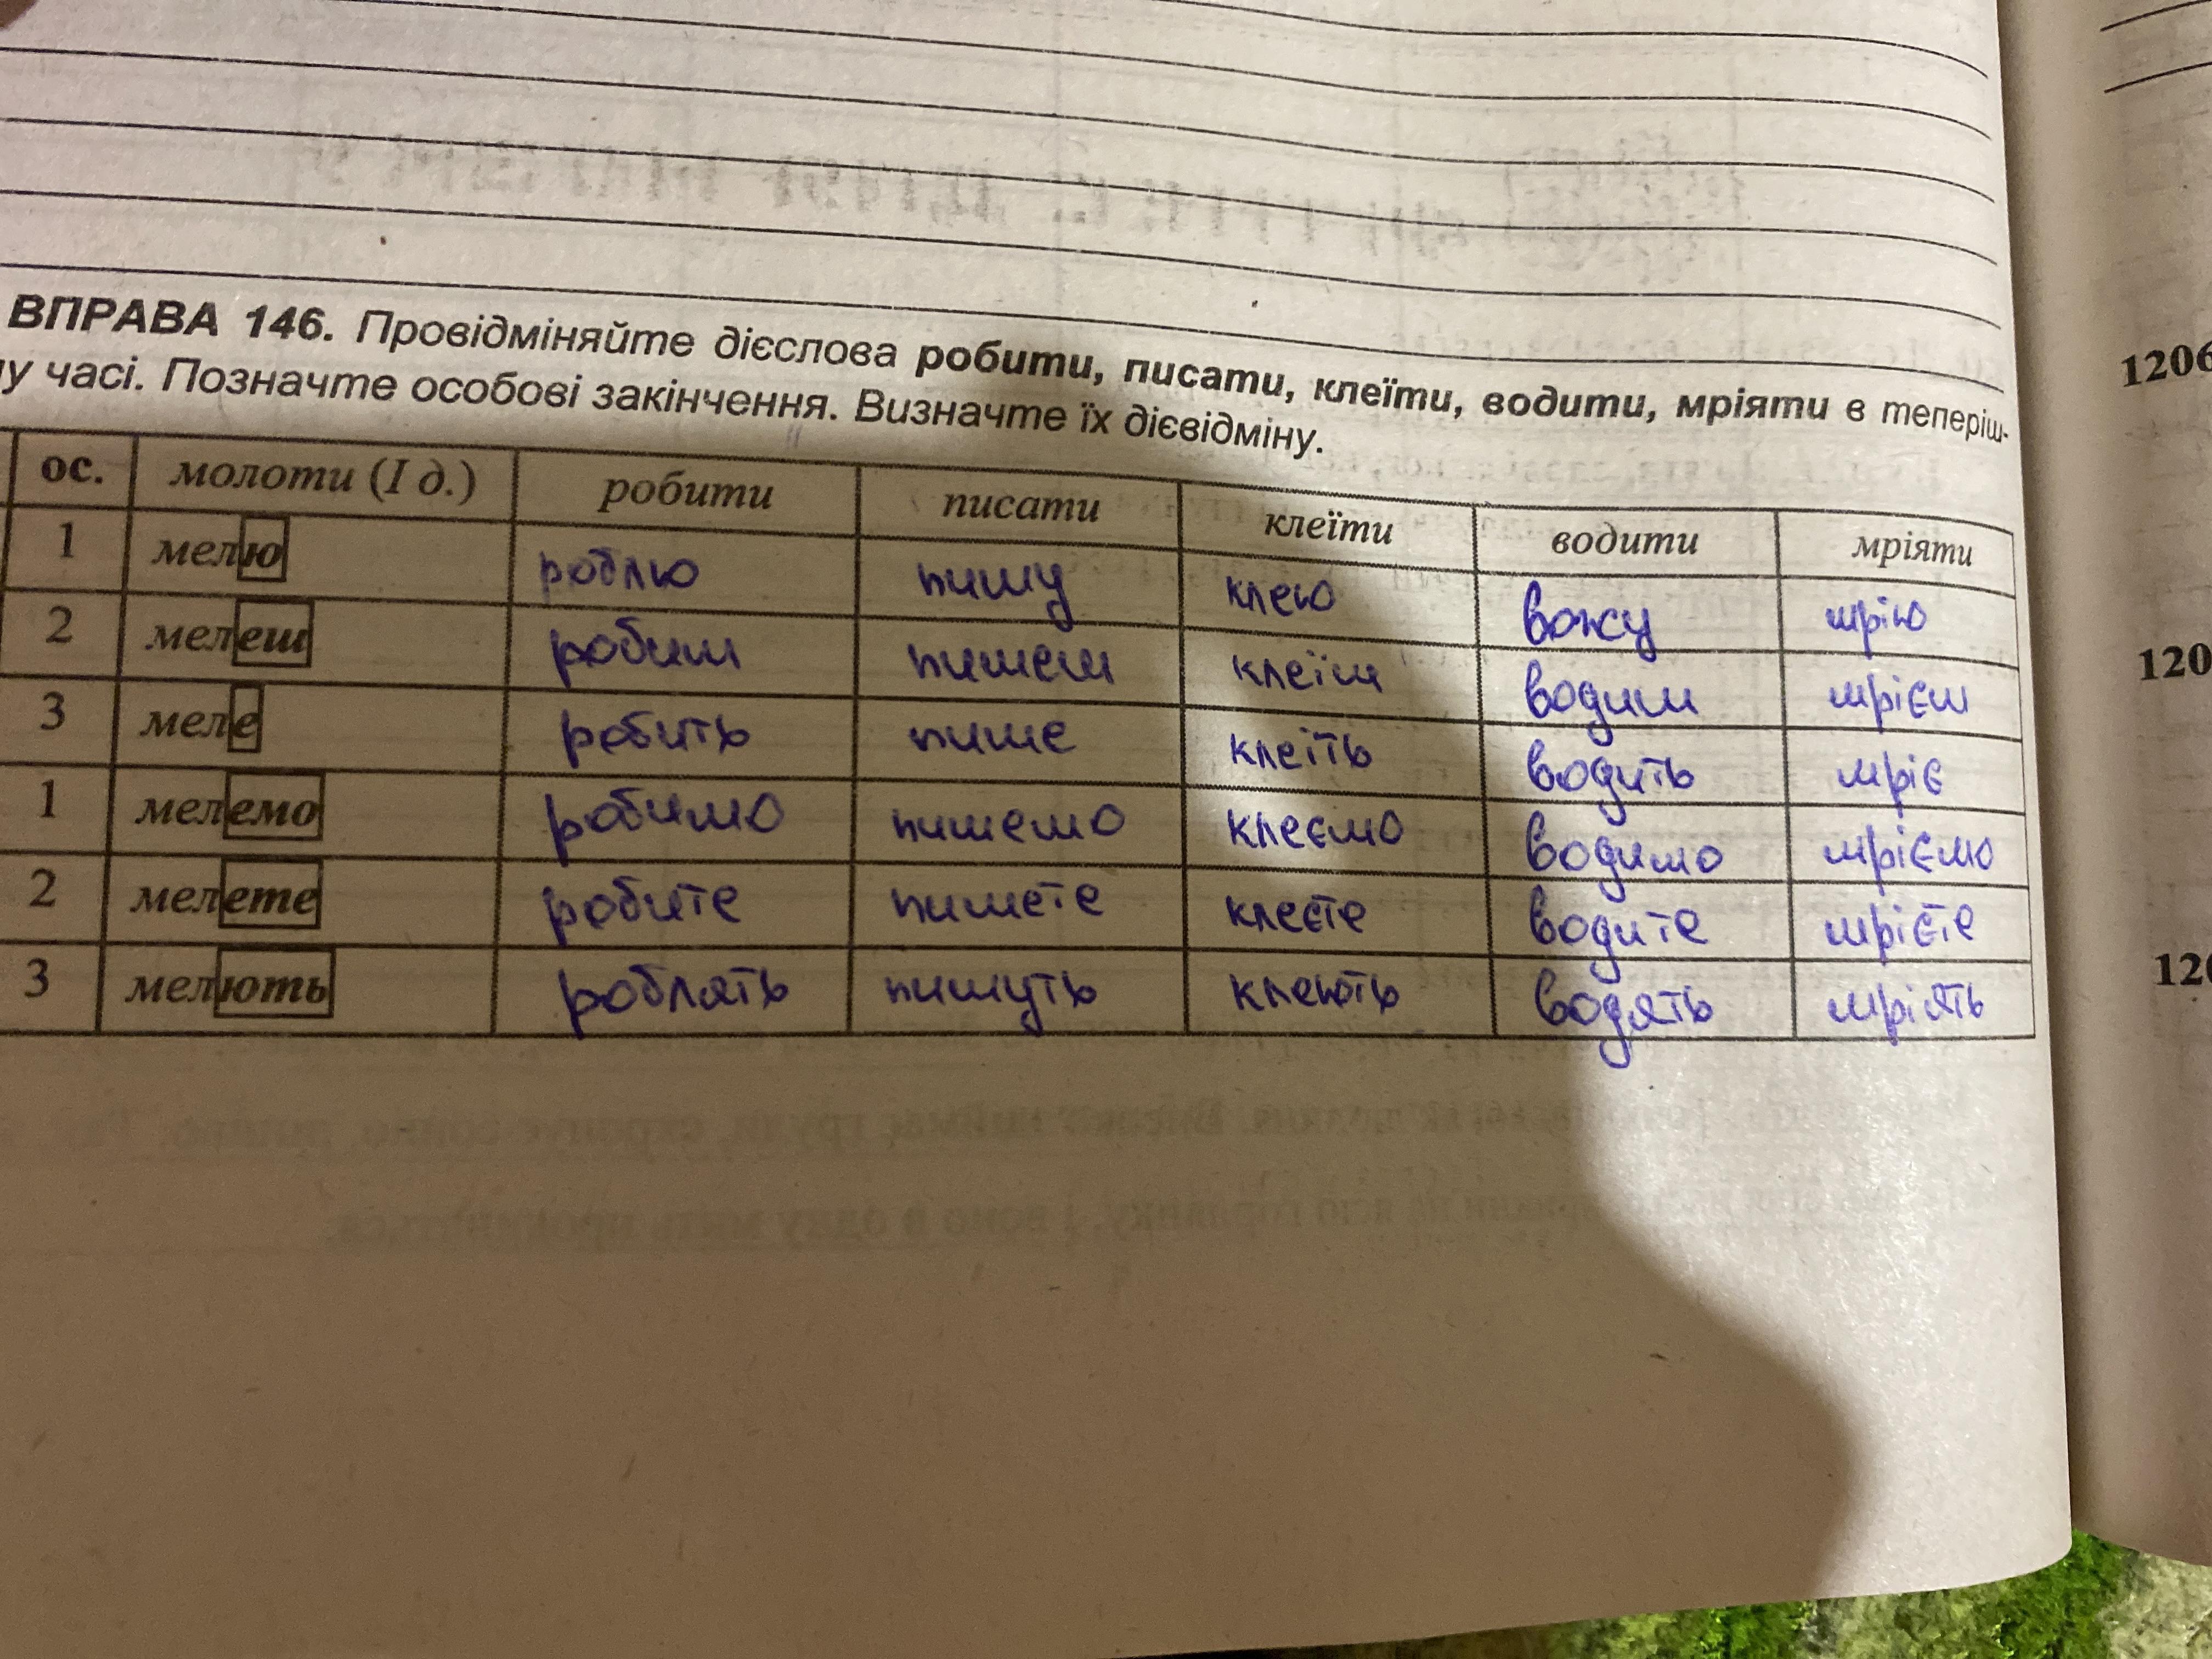 ВПРАВА 146. Провідміняйте дієслова робити, писати, клеїти, водити, мріяти в теперіш-
у часі. Позначте особові закінчення. Визначте їх дієвідміну.
ос. молоти (І д.) робити писати клеїти водити мріяти
1 мелю роблю пишу клею вожу мрію
2 мелеш робиш пишеш клеїш водиш мрієш
3 меле робить пише клеїть водить мріє
1 мелемо робимо пишемо клеємо водимо мріємо
2 мелете робите пишете клеєте водите мрієте
3 мелють роблять пишуть клеють водять мріять
1206
120
120